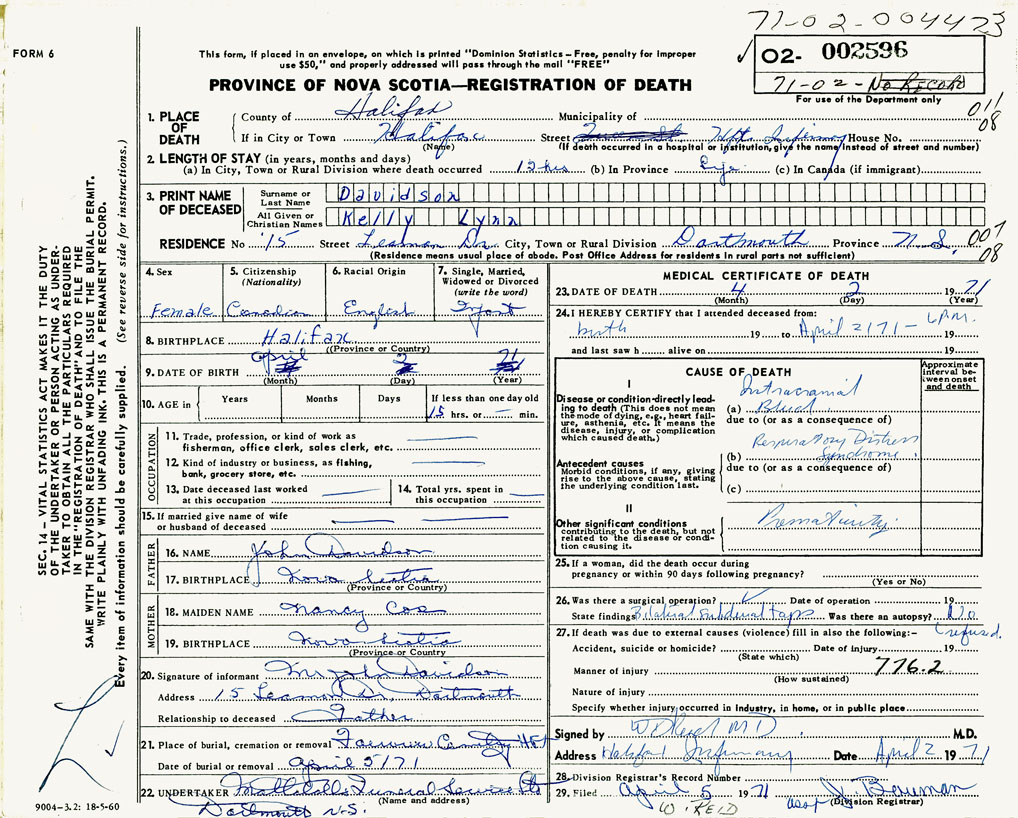 71-02-004473
FORM 6
This form, if placed in an envelope, on which is printed "Dominion Statistics – Free, penalty for improper
use $50," and properly addressed will pass through the mail "FREE"
02- 002596
71-02- No RECORD
For use of the Department only
PROVINCE OF NOVA SCOTIA—REGISTRATION OF DEATH
011
08
1. PLACE OF DEATH
County of Halifax Municipality of
If in City or Town Halifax Street Hfx Infirmary House No.
(Name) (If death occurred in a hospital or institution, give the name instead of street and number)
2. LENGTH OF STAY (in years, months and days)
(a) In City, Town or Rural Division where death occurred 15 hrs (b) In Province (c) In Canada (if immigrant)
3. PRINT NAME OF DECEASED
Surname or Last Name Davidson
All Given or Christian Names Kelly Lynn
RESIDENCE No 15 Street Leaman Dr. City, Town or Rural Division Dartmouth Province N.S.
007
08
(Residence means usual place of abode. Post Office Address for residents in rural parts not sufficient)
4. Sex
Female
5. Citizenship
(Nationality)
Canadian
6. Racial Origin
English
7. Single, Married,
Widowed or Divorced
(write the word)
Infant
8. BIRTHPLACE Halifax
(Province or Country)
9. DATE OF BIRTH April 2 71
(Month) (Day) (Year)
10. AGE in
Years Months Days If less than one day old
15 hrs. or — min.
OCCUPATION
11. Trade, profession, or kind of work as
fisherman, office clerk, sales clerk, etc.
12. Kind of industry or business, as fishing,
bank, grocery store, etc.
13. Date deceased last worked
at this occupation
14. Total yrs. spent in
this occupation
15. If married give name of wife
or husband of deceased
FATHER
16. NAME John Davidson
17. BIRTHPLACE Nova Scotia
(Province or Country)
MOTHER
18. MAIDEN NAME Nancy Cox
19. BIRTHPLACE Nova Scotia
(Province or Country)
20. Signature of informant Mr John Davidson
Address 15 Leaman Dr, Dartmouth
Relationship to deceased Father
21. Place of burial, cremation or removal Fairview Cemetery Hfx
Date of burial or removal April 5/71
22. UNDERTAKER Mattatalls Funeral Service Ltd
(Name and address)
Dartmouth N.S.
MEDICAL CERTIFICATE OF DEATH
23. DATE OF DEATH 4 2 1971
(Month) (Day) (Year)
24. I HEREBY CERTIFY that I attended deceased from:
birth 19 to April 2/71 – P.M.
and last saw h alive on 19
CAUSE OF DEATH
Approximate
interval between onset
and death
I
Disease or condition directly leading to death (This does not
mean the mode of dying, e.g., heart failure, asthenia, etc. It means the
disease, injury, or complication
which caused death.)
Intracranial
(a) Bleed
due to (or as a consequence of)
Antecedent causes
Morbid conditions, if any, giving
rise to the above cause, stating
the underlying condition last.
Respiratory Distress
(b) Syndrome
due to (or as a consequence of)
(c)
II
Other significant conditions
contributing to the death, but not
related to the disease or condition causing it.
Prematurity
25. If a woman, did the death occur during
pregnancy or within 90 days following pregnancy?
(Yes or No)
26. Was there a surgical operation? ✓ Date of operation 19
State findings Bilateral subdural taps Was there an autopsy? No
(refused.
27. If death was due to external causes (violence) fill in also the following:–
Accident, suicide or homicide? Date of injury 19
(State which)
Manner of injury 776.2
(How sustained)
Nature of injury
Specify whether injury occurred in industry, in home, or in public place
Signed by M.D.
Address Halifax Infirmary Date April 2 1971
28. Division Registrar's Record Number
29. Filed April 5 1971 J. Bauman
(Division Registrar)
W. REID
SEC. 14 – VITAL STATISTICS ACT MAKES IT THE DUTY
OF THE UNDERTAKER OR PERSON ACTING AS UNDERTAKER TO OBTAIN ALL THE PARTICULARS REQUIRED
IN THE "REGISTRATION OF DEATH" AND TO FILE THE
SAME WITH THE DIVISION REGISTRAR WHO SHALL ISSUE THE BURIAL PERMIT.
WRITE PLAINLY WITH UNFADING INK. THIS IS A PERMANENT RECORD.
Every item of information should be carefully supplied. (See reverse side for instructions.)
9004–3.2: 18-5-60